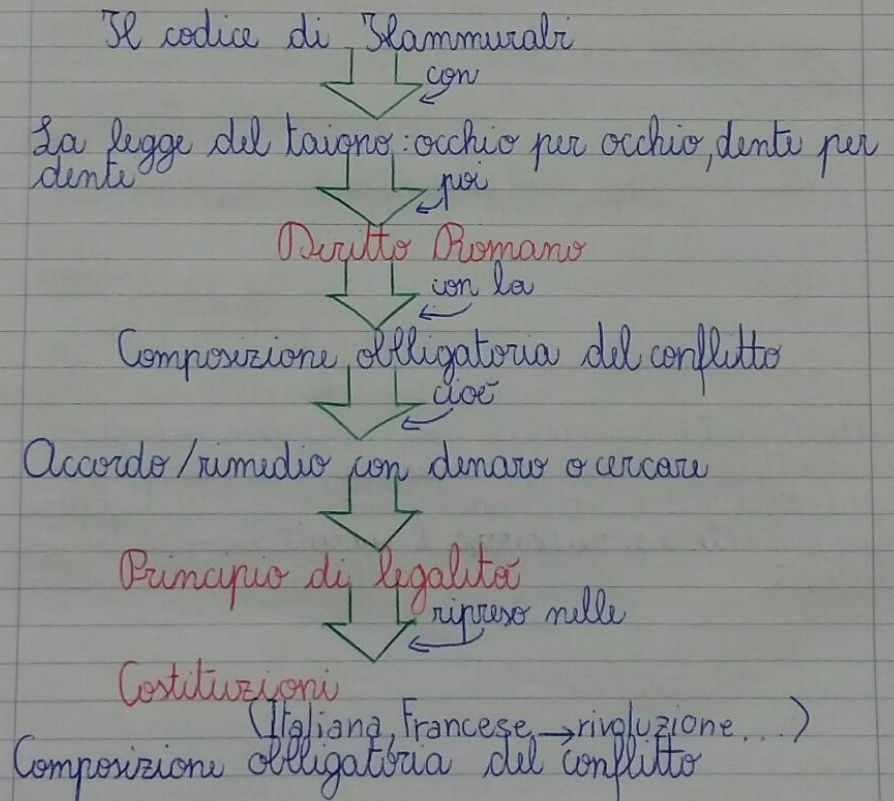 Il codice di Hammurabi
con
La legge del taigno: occhio per occhio, dente per
dente
poi
Diritto Romano
con la
Composizione obbligatoria del conflitto
cioè
Accordo/rimedio con denaro o cercare
Principio di legalità
ripreso nelle
Costituzioni
(Italiana, Francese → rivoluzione...)
Composizione obbligatoria del conflitto